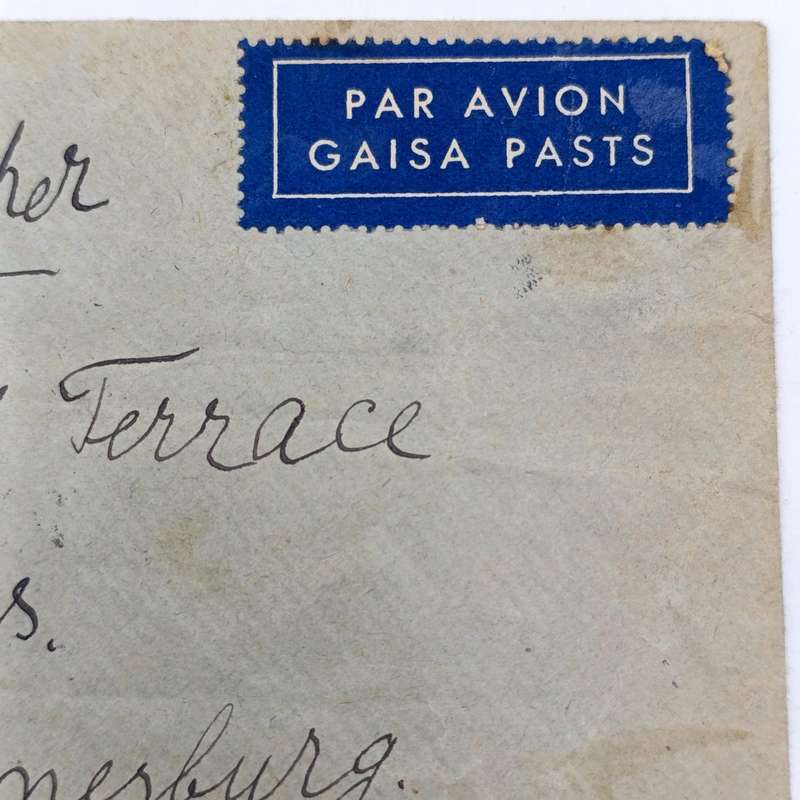 PAR AVION
GAISA PASTS
her
Terrace
s.
nerburg.